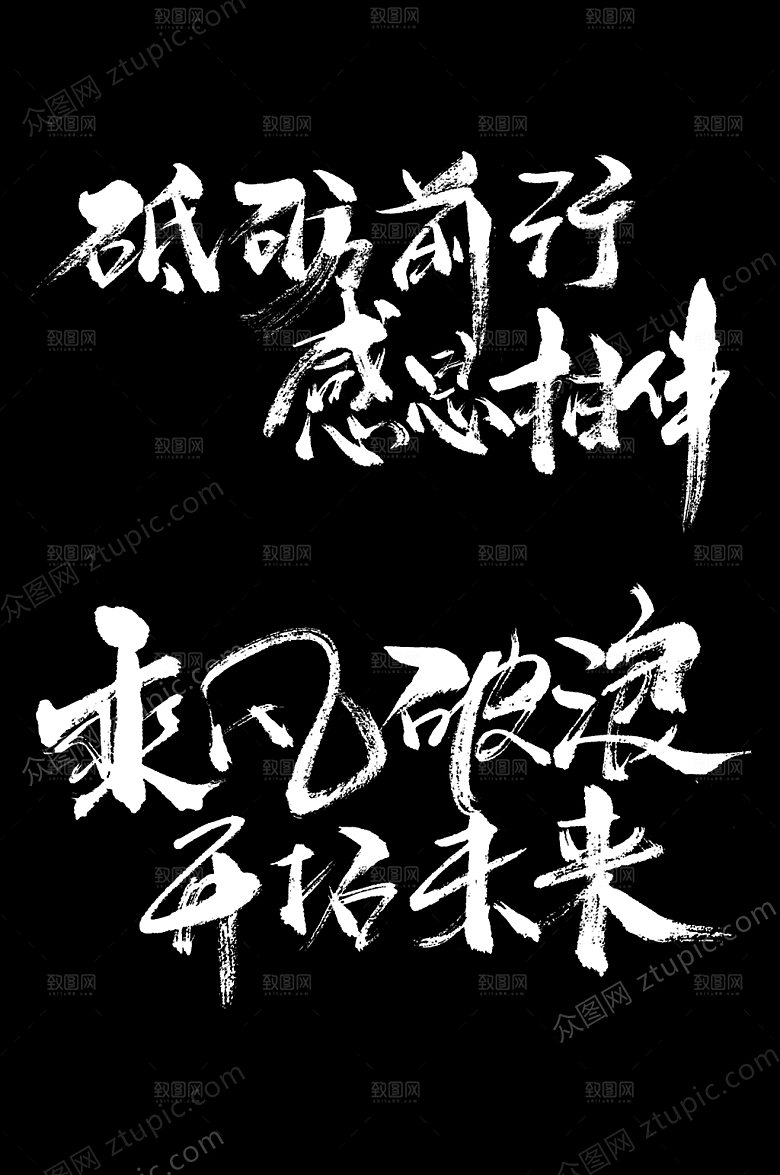 砥砺前行
感恩相伴
乘风破浪
开拓未来
致图网
zhitu88.com
众图网 ztupic.com